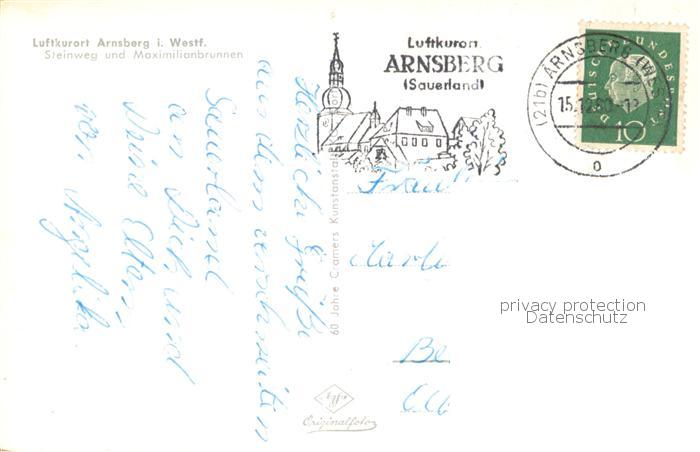 Luftkurort Arnsberg i. Westf.
Steinweg und Maximilianbrunnen
Herzliche Grüße
aus dem
Sauerland
an Dich und
Deine Eltern
von Angelika
60 Jahre Cramers Kunstanstalt
Luftkurort
ARNSBERG
(Sauerland)
(21b) ARNSBERG (WESTF)
15.12.60
o
DEUTSCHE BUNDESPOST
10
Originalfoto
privacy protection
Datenschutz